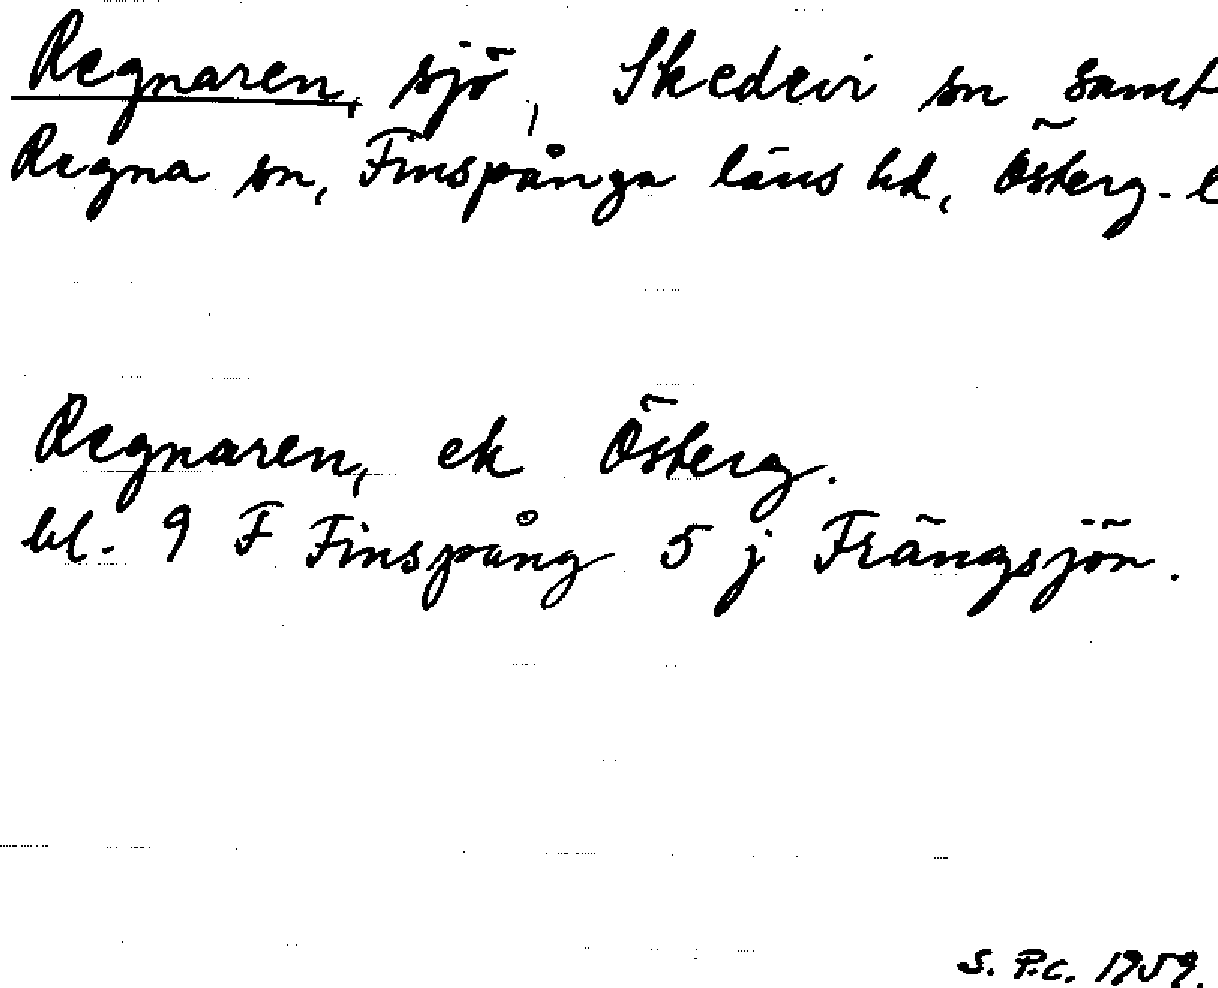 Regnaren, sjö, Skedevi sn samt
Regna sn, Finspånga läns hd, Österg. l
Regnaren, ek Österg.
bl. 9 F Finspång 5 j Frängsjön.
S. P:c. 1959.